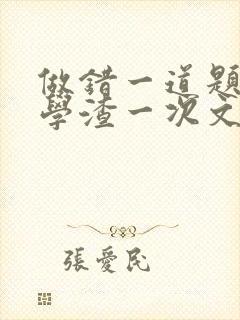 做錯一道題
學渣一次文
張愛民